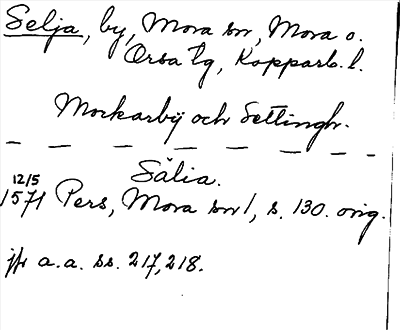 Selja, by, Mora sn, Mora o.
Orsa tg, Kopparb. l.
Morkarby och Settingb.
Sälia.
12/5
1571 Pers, Mora sn 1, s. 130. orig.
jfr a.a. ss. 217, 218.